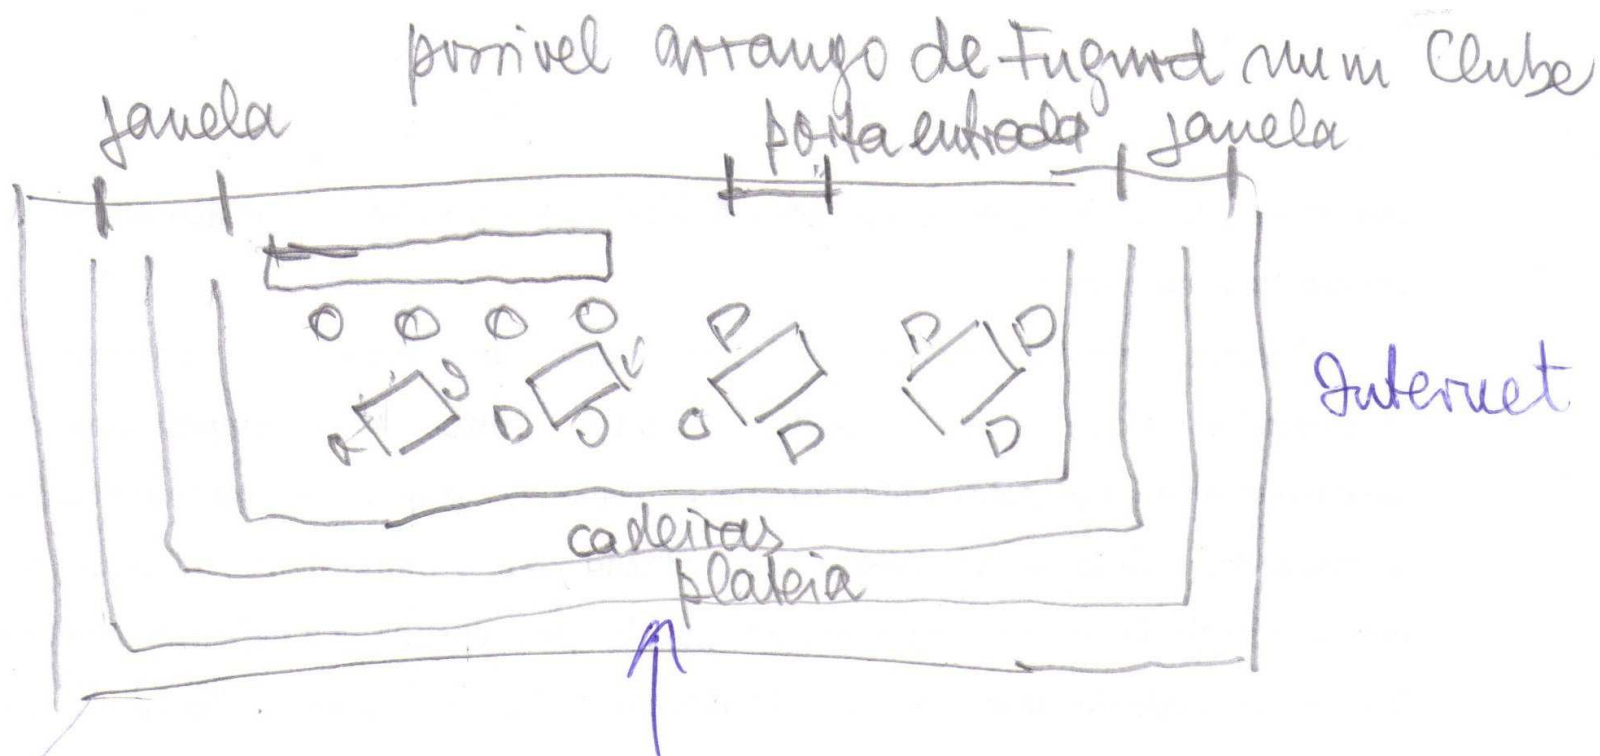 possivel arrango de Fugard num Clube
janela
porta entrada
janela
Internet
cadeiras
plateia